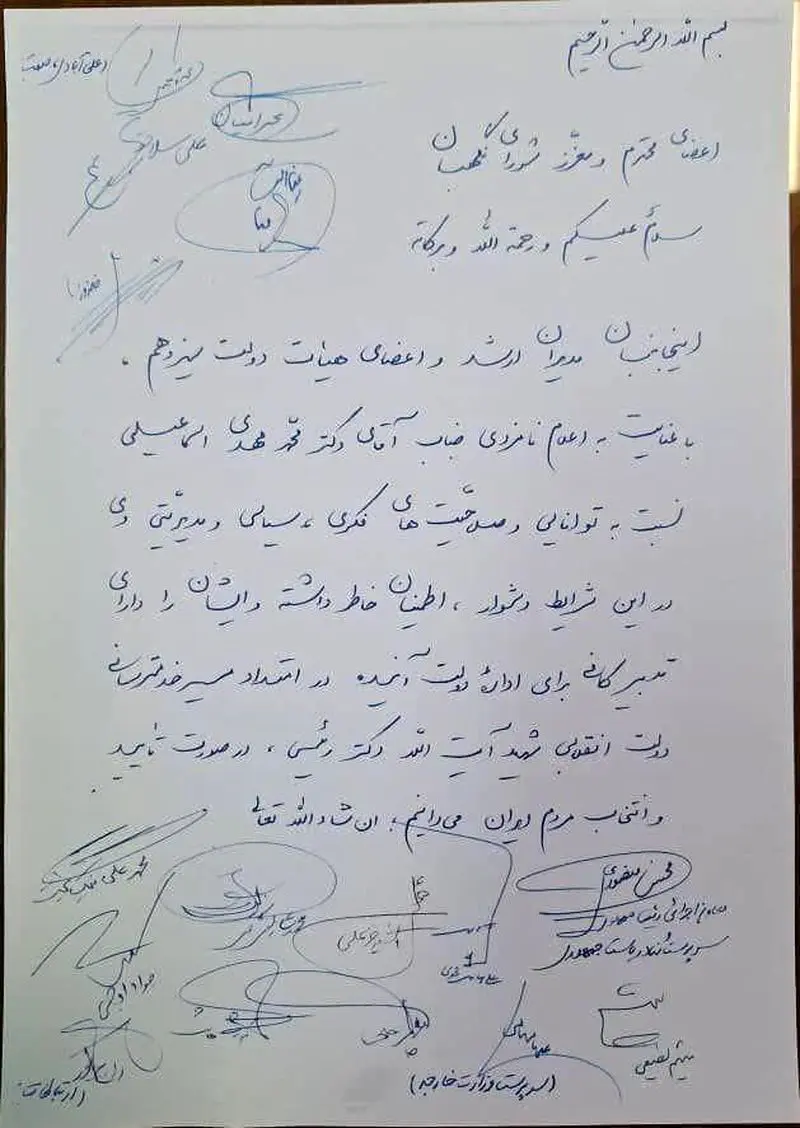 بسم الله الرحمن الرحیم
اعضای محترم و معزّز شورای نگهبان
سلامٌ علیکم و رحمة الله و برکاته
اینجانبان مدیران ارشد و اعضای هیأت دولت سیزدهم،
با عنایت به اعلام نامزدی جناب آقای دکتر محمّد مهدی اسماعیلی
نسبت به توانایی و صلاحیّت های فکری، سیاسی و مدیریّتی وی
در این شرایط دشوار، اطمینان خاطر داشته و ایشان را دارای
برای ادارهٔ دولت آینده در امتداد مسیر خدمترسانی
دولت انقلابی شهید آیت الله دکتر رئیسی، در صورت تأیید
و انتخاب مردم ایران می‌دانیم، ان شاء الله تعالی
(علی آبادی، صمت)
بحرانیان
علی سلاجقه
محسن منصوری
معاون اجرائی رئیس جمهور
سرپرست نهاد ریاست جمهوری
جواد اوجی
میثم لطیفی
(سرپرست وزارت خارجه)
(ارتباطات)